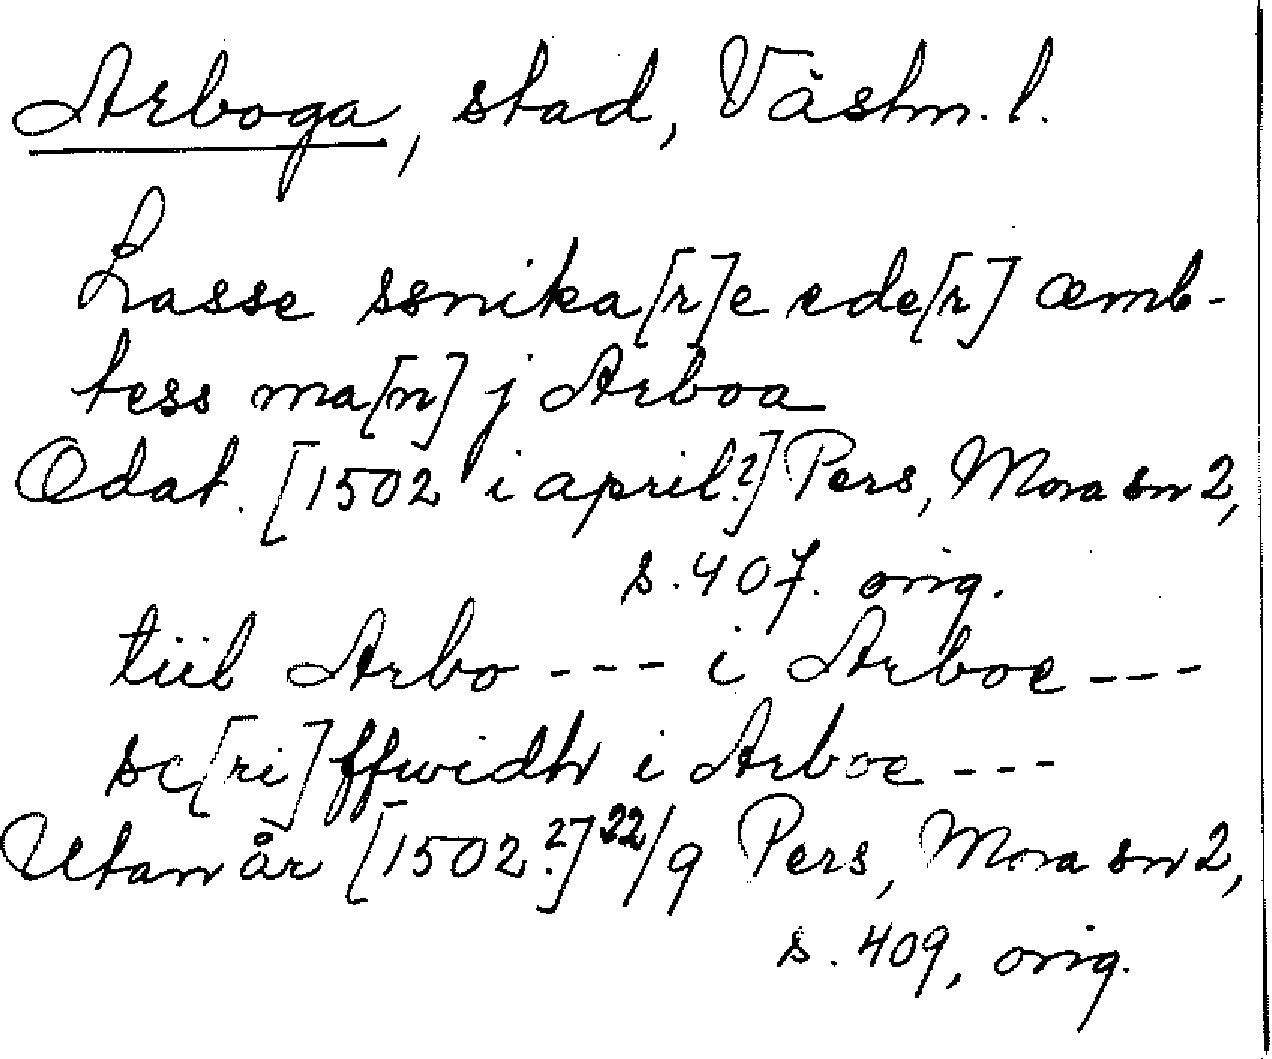 Arboga, stad, Västm. l.
Lasse ssnika[r]e ede[r] œmb-
tess ma[n] j Arboa
Odat. [1502 i april?] Pers, Mora sn 2,
s. 407. orig.
tiil Arbo --- i Arboe ---
sc[ri]ffwidh i Arboe ---
Utan år [1502?] 22/9 Pers, Mora sn 2,
s. 409, orig.